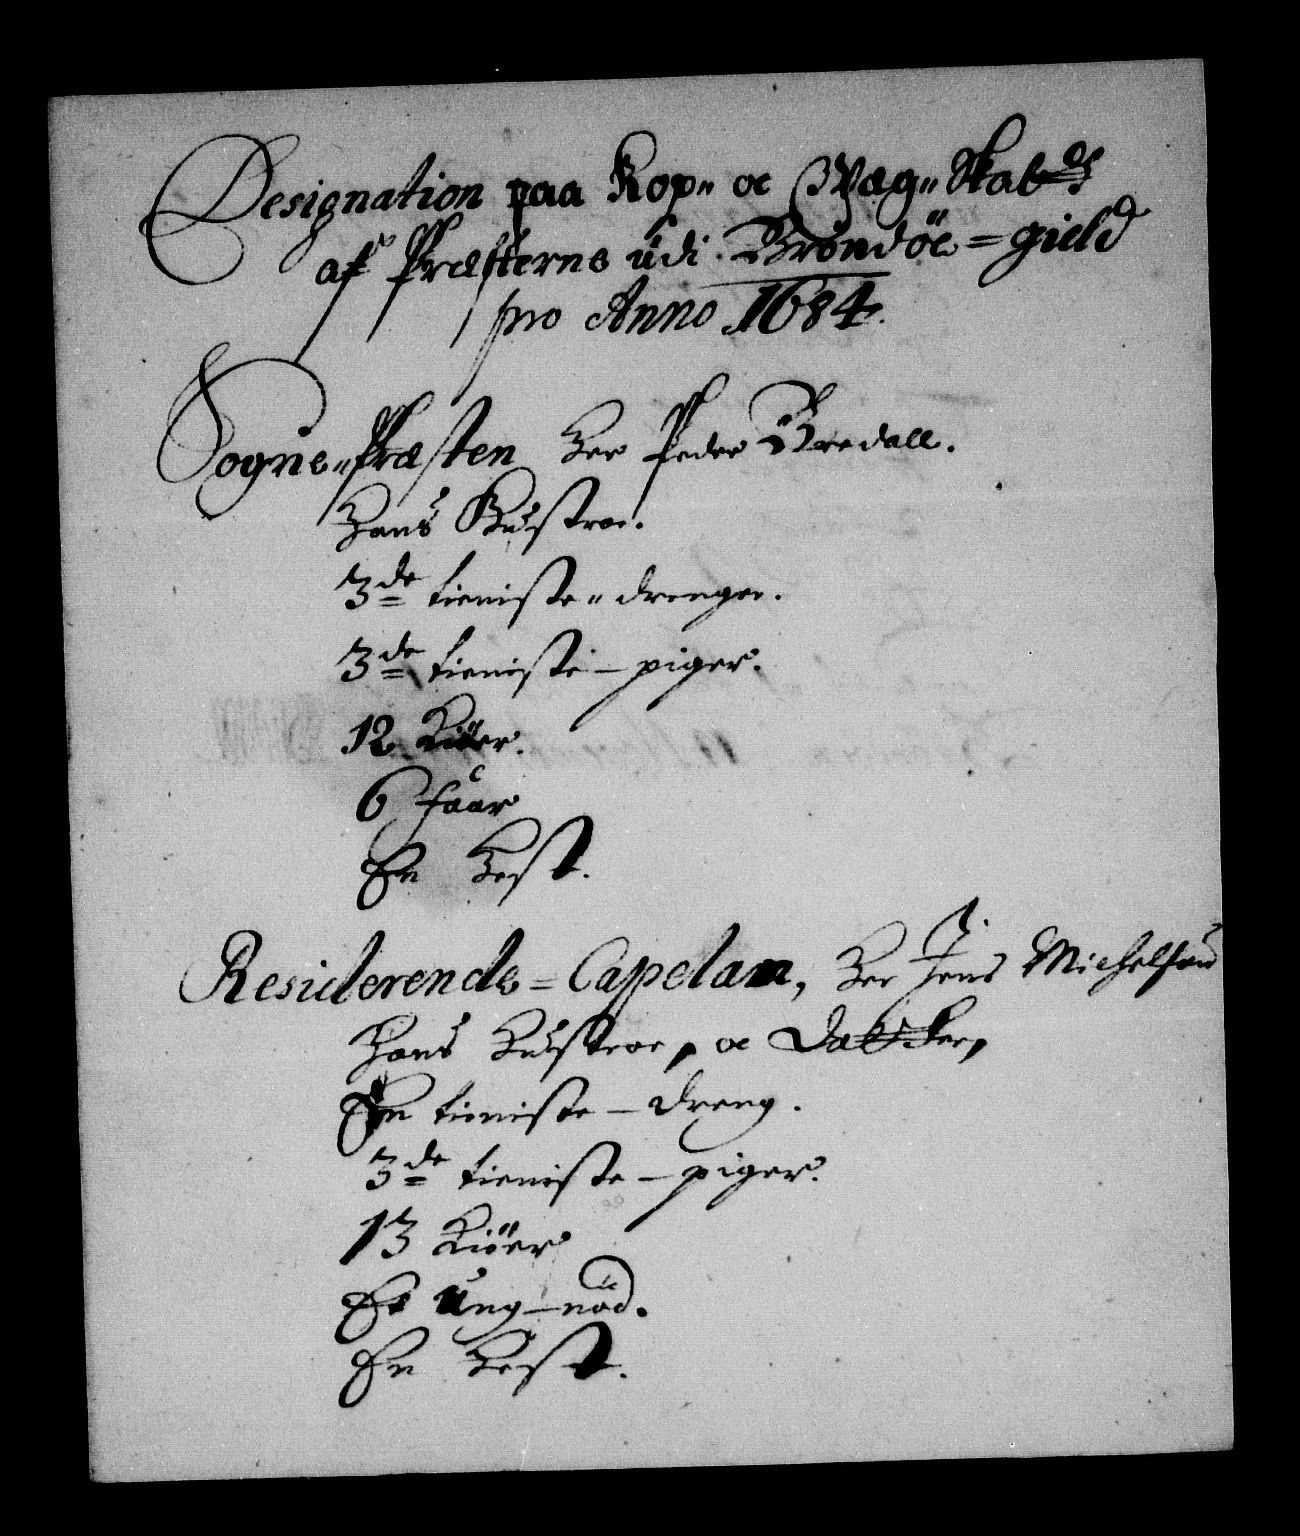 Designation paa Kop„ oc Qvæg„ Skat
af Præsterne üdi Brönöe = gield
pro Anno 1684.
Sogne„ Præsten Her Peder Bredall.
Hans Hustroe.
3de tieniste„ drenge.
3de tieniste – piger.
12 Kiöer.
6 faar
En Hest.
Residerende = Capelan, Her Jens Michelsøn
Hans Hustroe, oc
En tieniste – dreng.
3de tieniste – piger.
13 Kiöer
Et Ung – nöd.
En Hest.